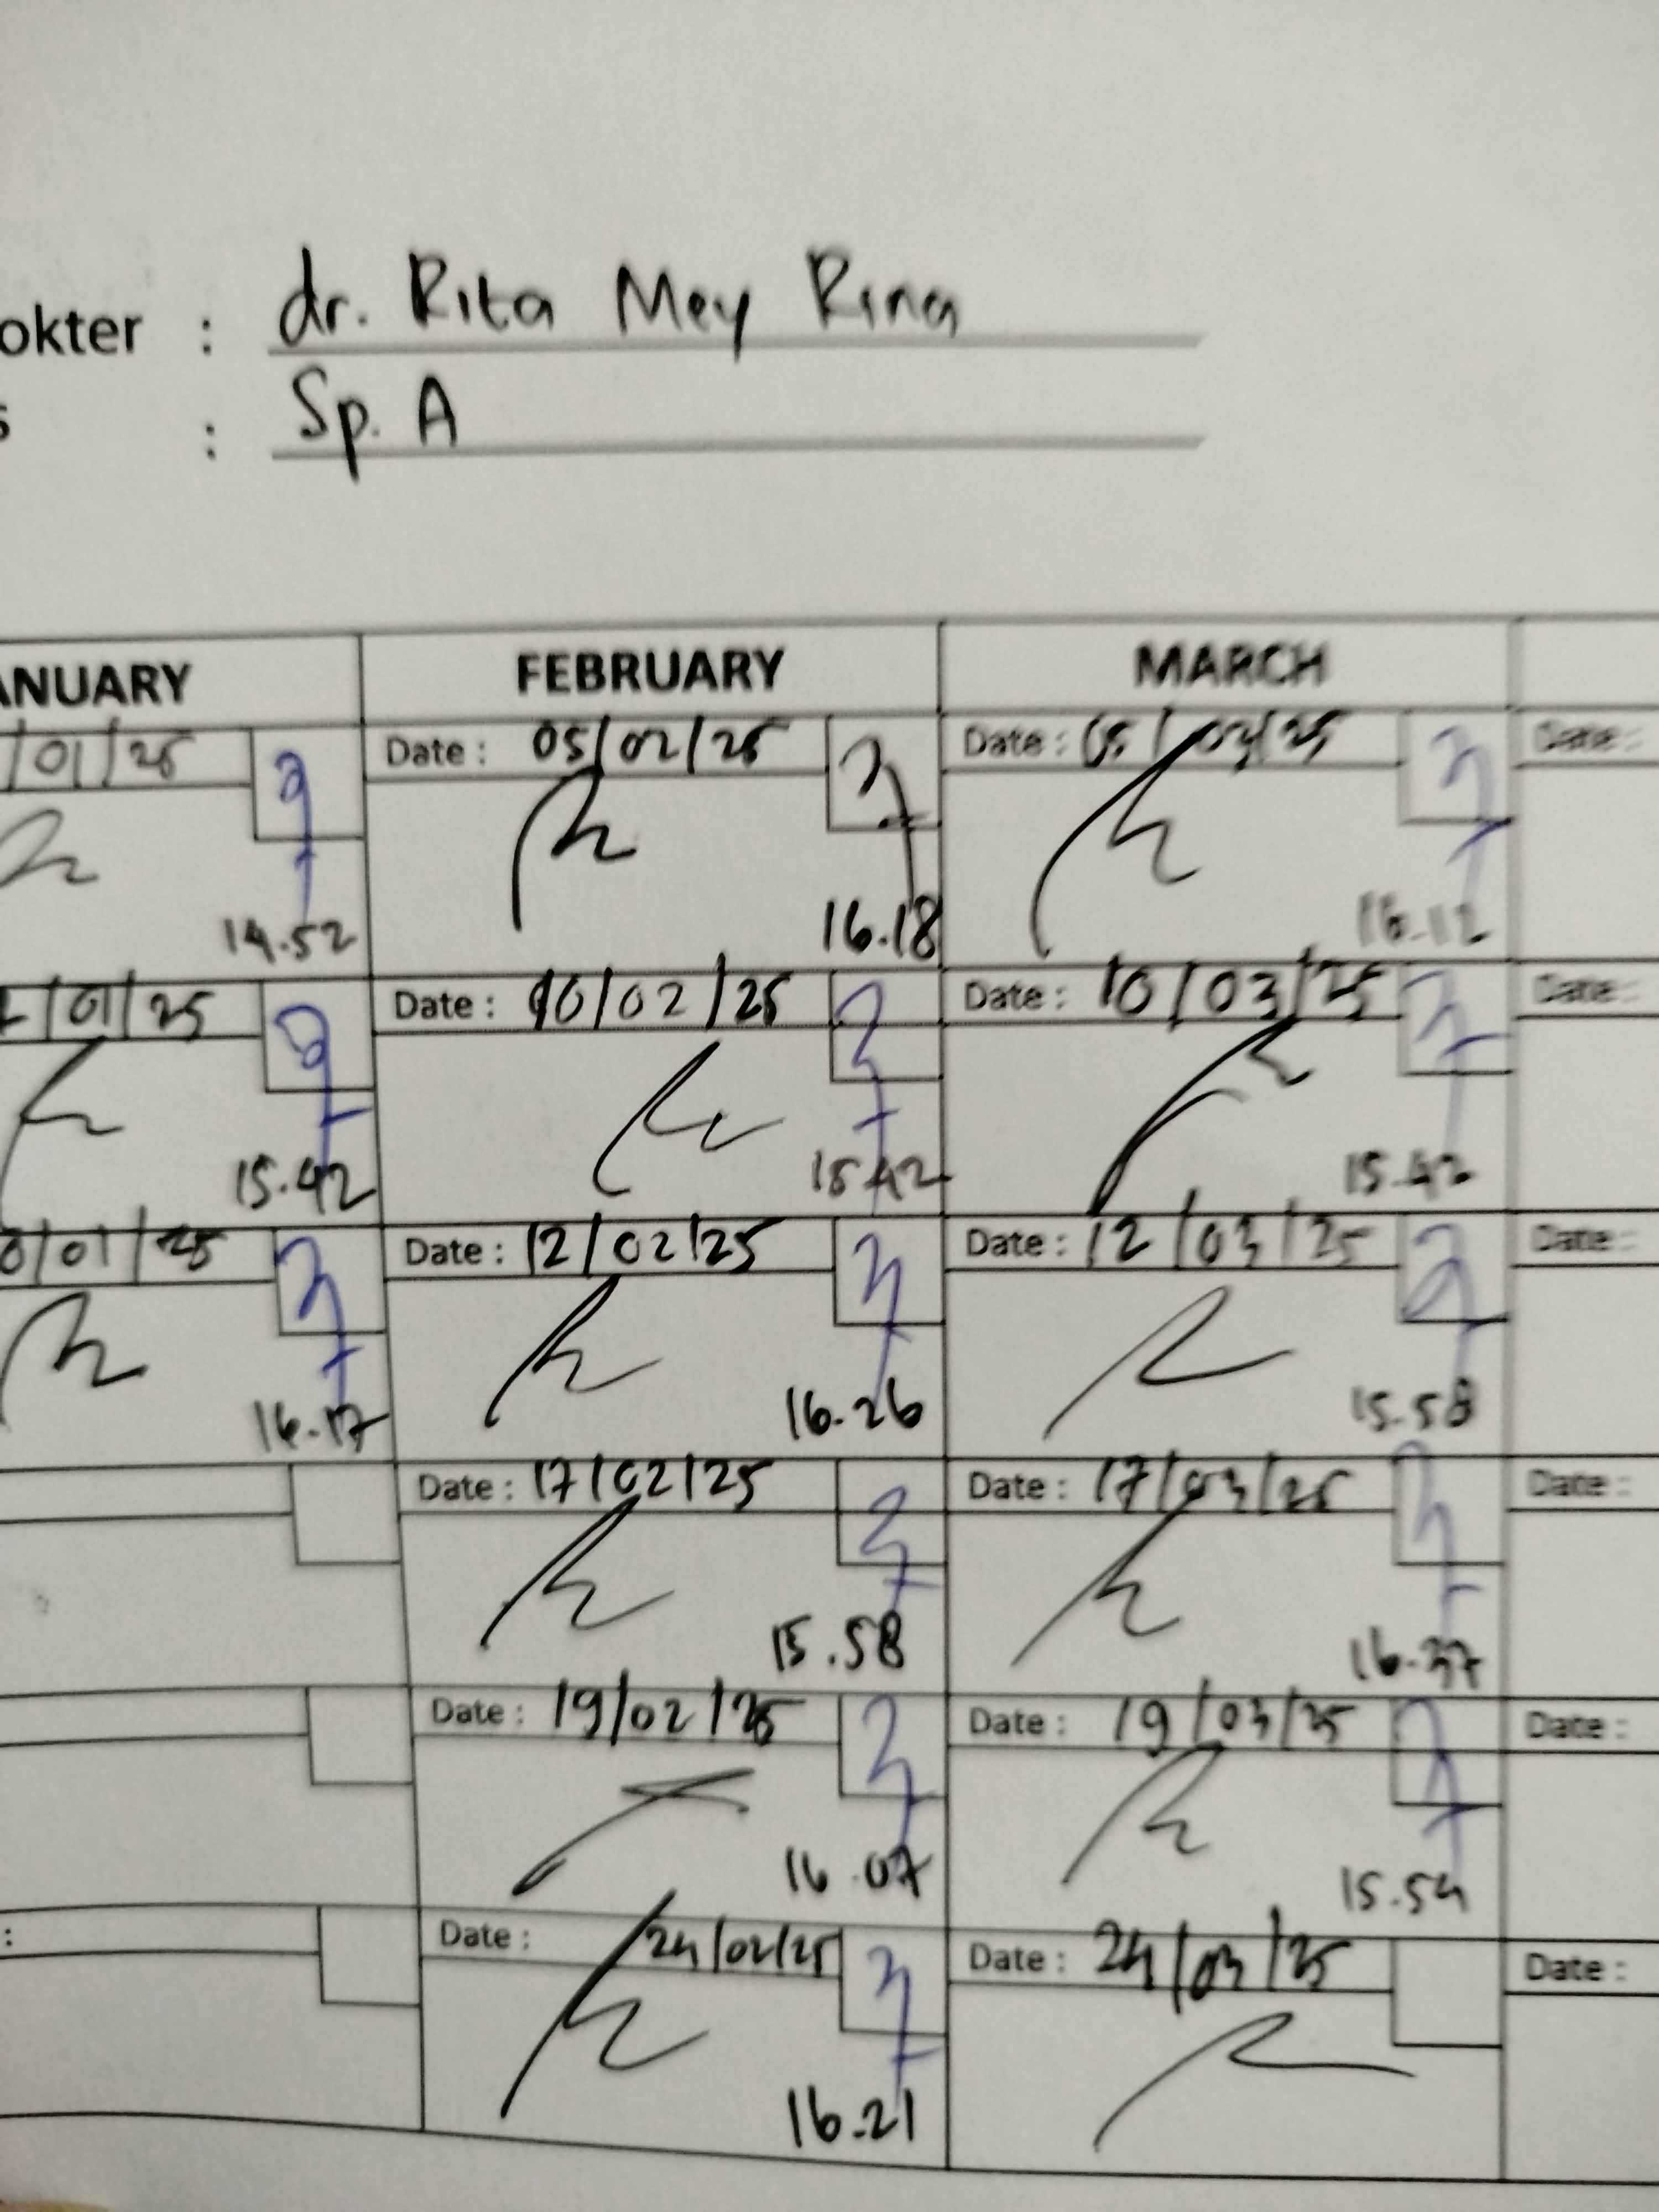 okter : dr. Rita Mey Rina
s : Sp. A
ANUARY FEBRUARY MARCH
/01/25 Date : 05/02/25 Date : 05/03/25 Date :
14.52 16.18 16.12
/01/25 Date : 10/02/25 Date : 10/03/25 Date :
15.42 15.42 15.42
/01/25 Date : 12/02/25 Date : 12/03/25 Date :
16.17 16.26 15.58
Date : 17/02/25 Date : 17/03/25 Date :
15.58 16.37
Date : 19/02/25 Date : 19/03/25 Date :
16.07 15.54
: Date : 24/02/25 Date : 24/03/25 Date :
16.21